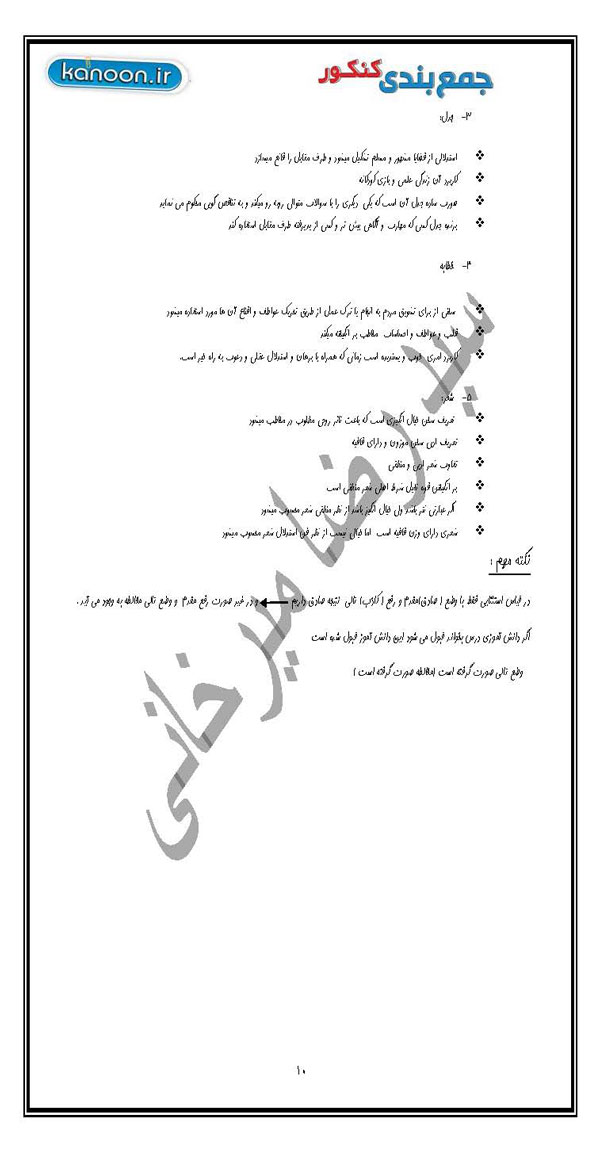 kanoon.ir
جمع بندی کنکور
۳- جدل:
استدلالی از قضایا مشهور و مسلم تشکیل میشود و طرف مقابل را قانع میسازد
کاربرد آن زندگی علمی و بازی کودکانه
صورت ساده جدل آن است که یکی دیگری را با سوالات متوالی روبه رو میکند و به تناقض گویی محکوم می نماید
برنده جدل کسی که مهارت و آگاهی بیش تر و کسی از پذیرفته طرف مقابل استفاده کند
۴- خطابه
سخنی از برای تشویق مردم به انجام یا ترک عملی از طریق تحریک عواطف و اقناع آن ها مورد استفاده میشود
قلب و عواطف و احساسات مخاطب بر انگیخته میکند
کاربرد امری خوب و پسندیده است زمانی که همراه با برهان و استدلال عقلی و دعوت به راه خیر است.
۵- شعر:
تعریف سخن خیال انگیزی است که باعث تاثر روحی مطلوب در مخاطب میشود
تعریف ادبی سخن موزون و دارای قافیه
تفاوت شعر ادبی و منطقی
بر انگیختن قوه تخیل شرط اصلی شعر منطقی است
اگر عبارتی نثر باشد ولی خیال انگیز باشد از نظر منطقی شعر محسوب میشود
شعری دارای وزن قافیه است اما خیالی نیست از نظر فن استدلال شعر محسوب نمیشود
نکته مهم :
در قیاس استثنایی فقط با وضع ( صادق)مقدم و رفع ( کاذب) تالی نتیجه صادق داریم ← و در غیر صورت رفع مقدم و وضع تالی مغالطه به وجود می آید .
اگر دانش آموزی درس بخواند قبول می شود این دانش آموز قبول شده است
وضع تالی صورت گرفته است (مغالطه صورت گرفته است )
سید رضا میرخانی
۱۰